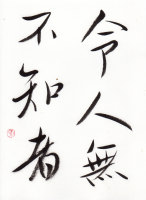 令人無
不知者